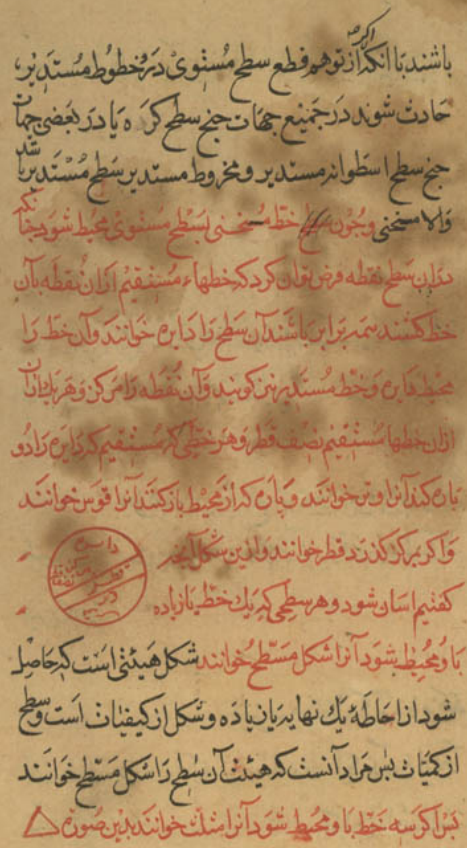 باشند با انکه اکر از توهم قطع سطح مستوی در و خطوط مستدیر
حادث شوند در جمیع جهات جنح سطح کره یا در بعضی جهات
جنح سطح اسطوانه مستدیر و مخروط مستدیر سطح مستدیر باشد
والا منحنی و چون خط منحنی بسطح مستوی محیط شود چنانکه
در آن سطح نقطه فرض توان کرد که خطهاء مستقیم از ان نقطه بآن
خط کشند همه برابر باشند آن سطح را دایره خوانند و آن خط را
محیط دایره و خط مستدیر نیز کویند و آن نقطه را مرکز و هر یک از آن
ازان خطها مستقیم نصف قطر و هر خطی که مستقیم که دایره را دو
پاره کند آنرا وتر خوانند و پاره که از محیط باز کنند آنرا قوس خوانند
و اکر بمرکز کذرد قطر خوانند و ازین شکل آنچه
دایره
قطر
کفتیم اسان شود و هر سطحی که یک خط یا زیاده
باو محیط شود آنرا شکل مسطح خوانند شکل هیئتی است که حاصل
شود از احاطهٔ یک نهایه یا زیاده و شکل از کیفیات است و سطح
از کمیات پس مراد آنست که هیئت آن سطح را شکل مسطح خوانند
پس اکر سه خط باو محیط شود آنرا مثلث خوانند بدین صورة